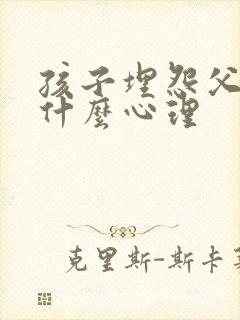 孩子埋怨父
什麼心理
克里斯-斯卡